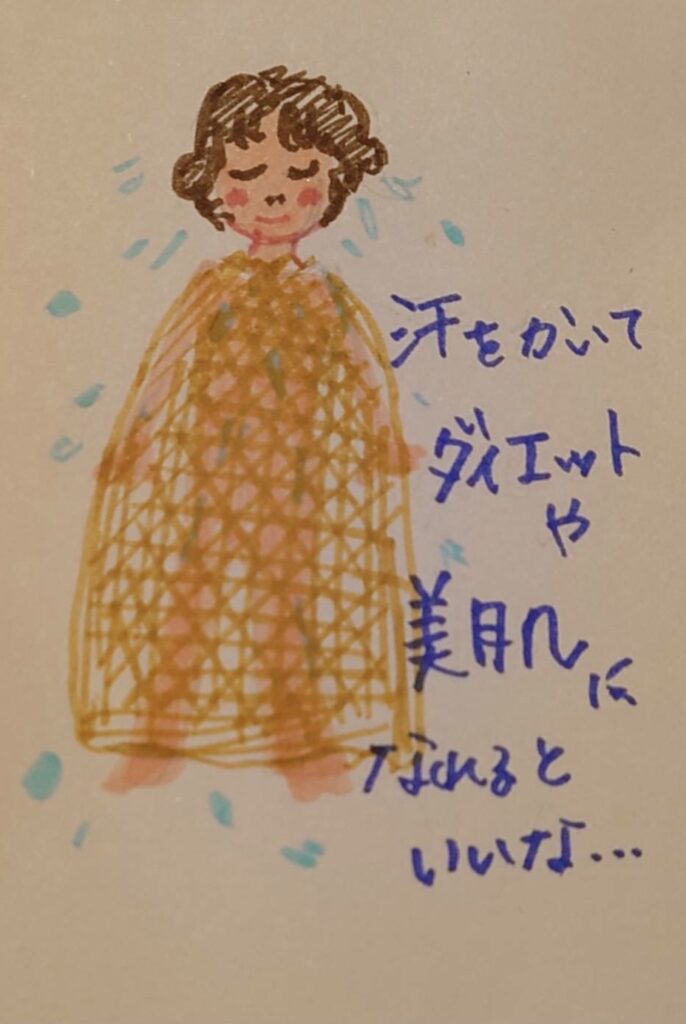 汗をかいて
ダイエット
や
美肌に
なれると
いいな...